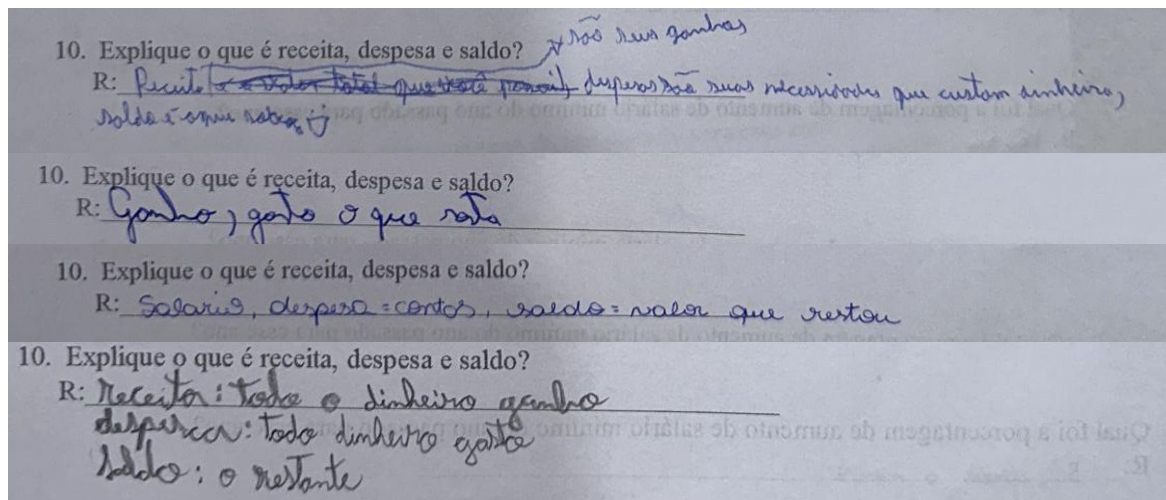 são seus ganhos
10. Explique o que é receita, despesa e saldo?
R: Receita é o valor total que você possui, despesas são suas necessidades que custam dinheiro,
saldo é o que sobra. :)
10. Explique o que é receita, despesa e saldo?
R: Ganho, gasto o que resta
10. Explique o que é receita, despesa e saldo?
R: Salario, despesa = contas, saldo = valor que restou
10. Explique o que é receita, despesa e saldo?
R: receita: todo o dinheiro ganho
despesca: todo dinheiro gasto
Saldo: o restante
Qual foi a porcentagem de aumento do salário mínimo
R.